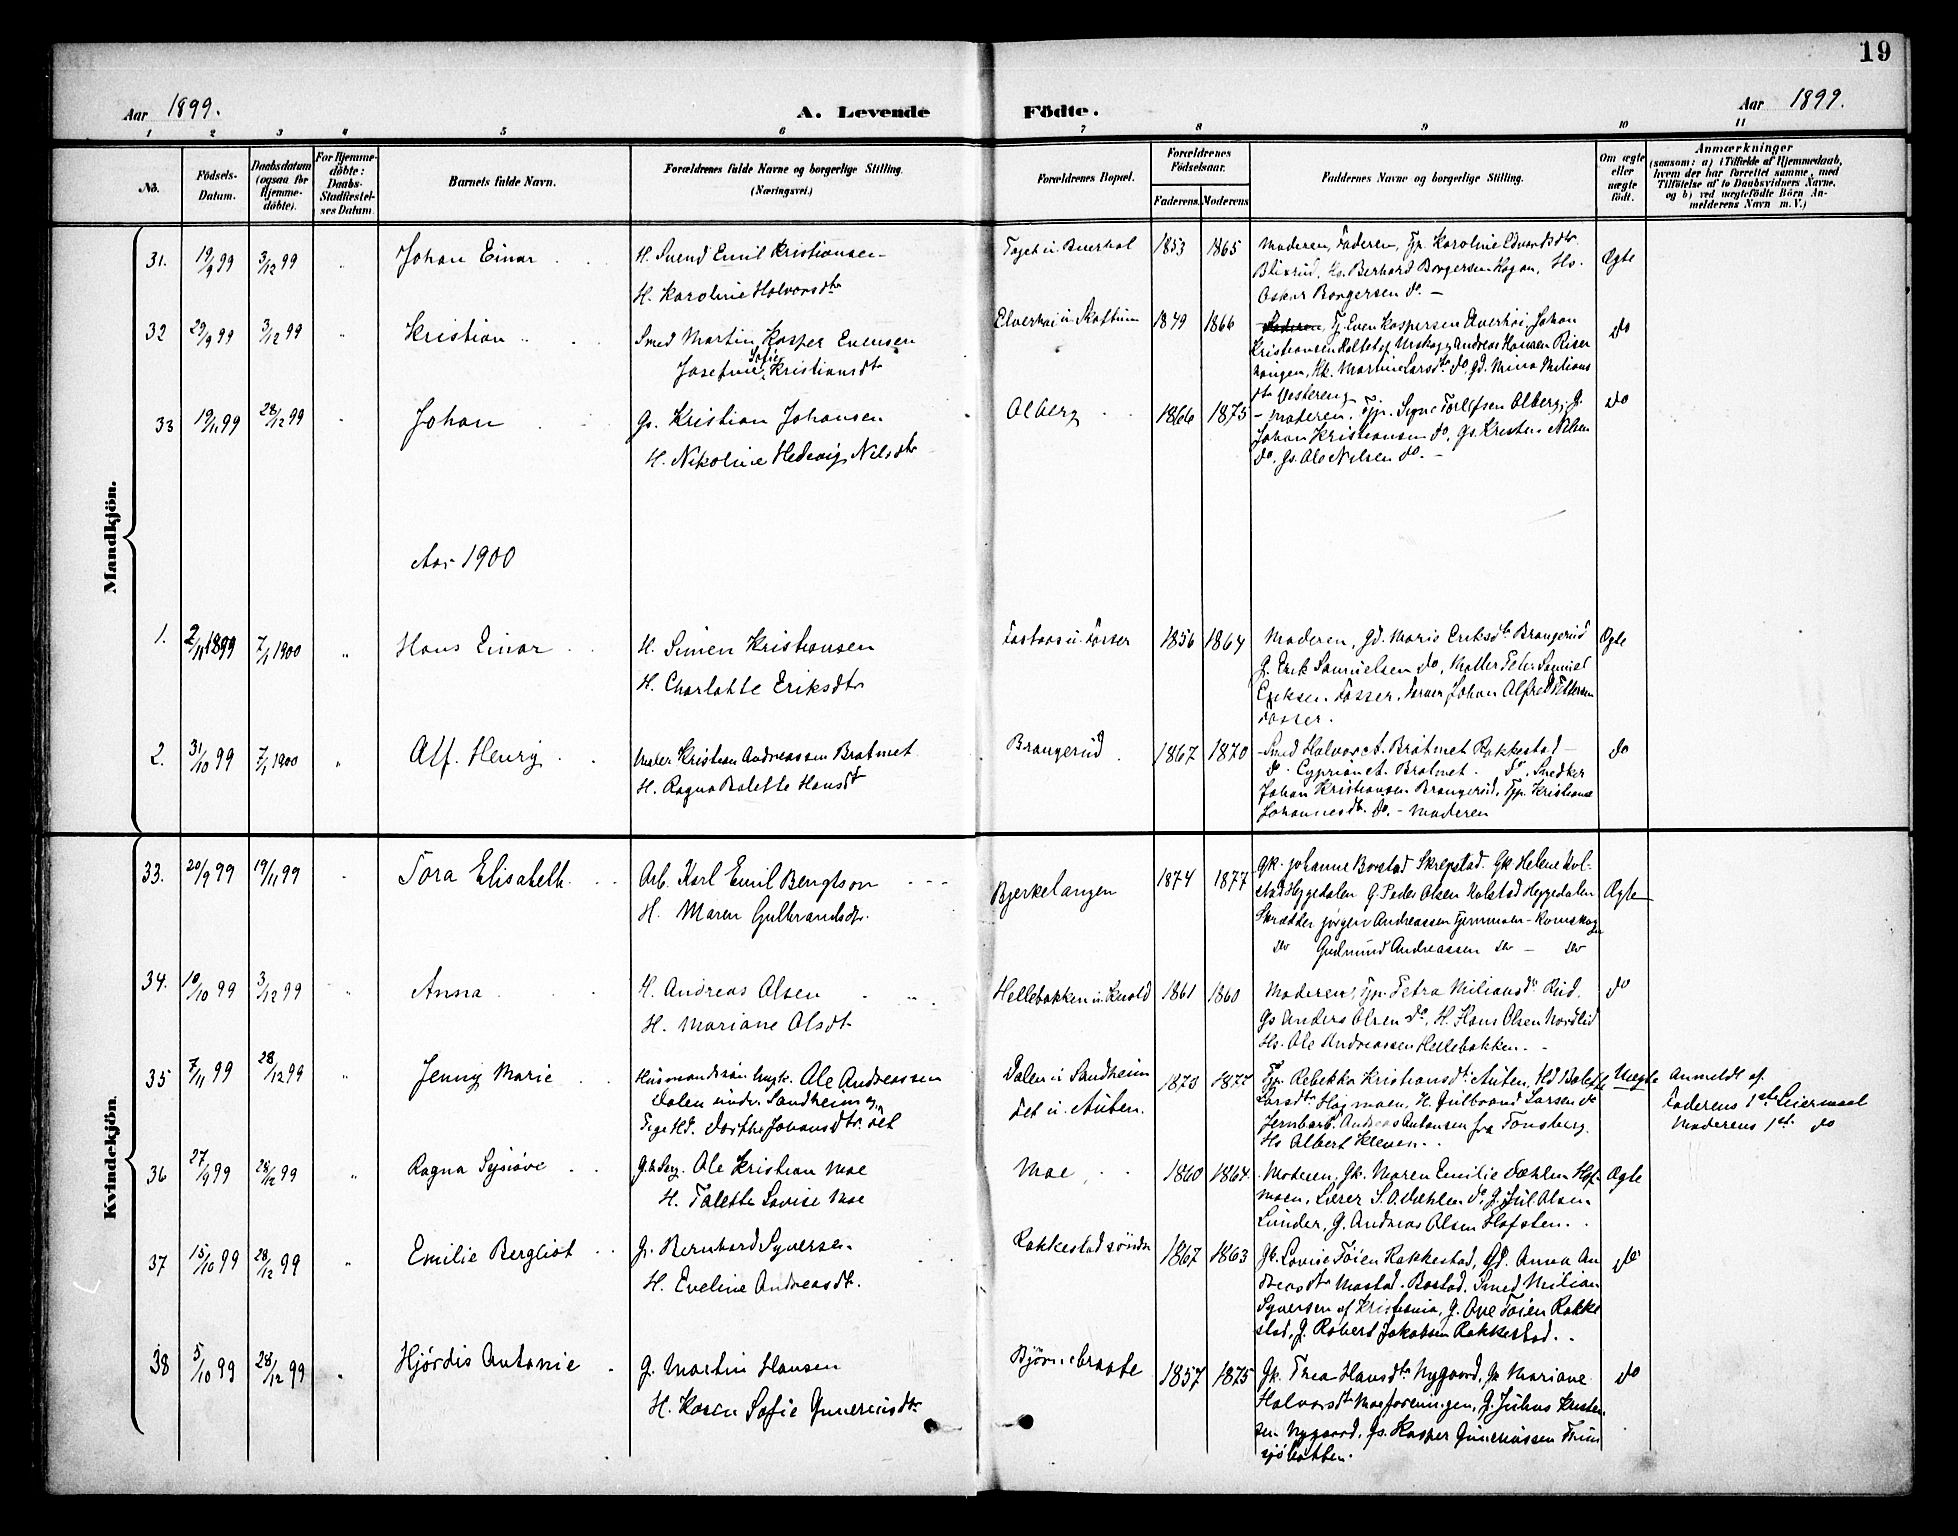 19
Aar 1899.
A. Levende Födte.
Aar 1899.
1 2 3 4 5 6 7 8 9 10 11
No.
Födsels-
Datum.
Daabsdatum
(ogsaa for
Hjemme-
döbte).
For Hjemme-
döbte:
Daabs-
Stadfæstel-
ses Datum.
Barnets fulde Navn.
Forældrenes fulde Navne og borgerlige Stilling.
(Næringsvei.)
Forældrenes Bopæl.
Forældrenes
Födselsaar.
Faderens. Moderens.
Faddernes Navne og borgerlige Stilling.
Om ægte
eller
uægte
födt.
Anmærkninger
(saasom: a) i Tilfælde af Hjemmedaab,
hvem der har forrettet samme, med
Tilföielse af to Daabsvidners Navne,
og b) ved uægtefödte Börn An-
melderens Navn m. V.)
Mandkjön.
31. 19/9 99 3/12 99 " Johan Einar
H. Svend Emil Kristiansen
H. Karoline Halvorsdtr
1853 1865
Moderen, Faderen, Tp. Karoline Edvardsdtr
Blixrud, Hs. Berhard Borgersen Kogan, Hs.
Oskar Borgersen do. -
Ægte
32 29/9 99 3/12 99 " Kristian
Smed Martin Kasper Evensen
Josefine Sofie Kristiansdtr
Elverhøi u. Skoftum 1849 1866
Faderen, Tj. Even Kaspersen Elverhøi, Johan
Kristiansen Urskog, Andreas Hansen Riser
haugen, Hk. Martine Larsdtr do, Gd. Mina Milians
dtr Vestereng
do
33 19/11 99 28/12 99 Johan
Gs. Kristian Johansen
H. Nikoline Hedevig Nilsdtr
Olberg 1866 1875
Moderen, Tp. Signe Torlefsen Olberg, G.
Johan Kristiansen do, Gs. Kristian Nilsen
do, Gs. Ole Nilsen do. -
do
Aar 1900
1. 2/11 1899 7/1 1900 " Hans Einar
H. Simen Kristiansen
H. Charlotte Eriksdtr
u. Fosser 1856 1864
Moderen, Gd. Maria Eriksdtr Brangerud
G. Erik Samuelsen do, Møller Peter Samuel
Eriksen Fosser, Johan Alfred Pettersen
Fosser.
Ægte
2. 31/10 99 7/1 1900 " Alf Henry
Maler Kristian Andreassen Bratmet
H. Ragna Bolette Hansdtr
Brangerud 1867 1870
Smed Halvor A. Bråtmet Rakkestad -
do. Cyprian A. Bratmet. do, Snedker
Johan Kristiansen Brangerud, Tp. Kristiane
Johannesdtr. do. - Moderen
do
Kvindekjön.
33. 20/9 99 19/11 99 Tora Elisabeth
Arb. Karl Emil Bengtson
H. Maren Gulbrandsdtr.
Bjerkelangen 1874 1877
Gk. Johanne Borstad Skrepstad. Gk Helene Kol-
stad Heggedalen G. Peder Olsen Kolstad Heggedalen
Skrædder Jørgen Andreassen Tjernmoen - Romskogen
do Gudmund Andreassen do - do
Ægte
34. 10/10 99 3/12 99 " Anna
H. Andreas Olsen
H. Mariane Olsdtr
Hellebakken u. Kvold 1861 1860
Moderen, Tp. Petra Miliansdtr Rud.
Gs Anders Olsen do, H. Hans Olsen Nordlid
Hs. Ole Andreassen Hellebakken. -
do
35 7/11 99 28/12 99 " Jenny Marie
Husmandssøn Ungk. Ole Andreassen
Dalen under Sandheim og
Pige Hd. Dorthe Johansdtr. Fet
Dalen u. Sandheim
Fet u. Auten. 1873 1877
Tp. Rebekka Kristiansdtr Auten, Hd Bolette
Larsdtr Høgmoen, H. Gulbrand Larsen do
Jernbarb. Andreas Antonsen fra Tønsberg.
Hs Albert Kleven. .
Uægte
Anmeldt af
Faderens 1ste Leiermaal
Moderens 1ste do
36 27/9 99 28/12 99 " Ragna Synøve
G. & Serg. Ole Kristian Moe
H. Talette Lovise Moe
Moe 1860 1864.
Moderen, Gk. Maren Emilie Dæhlen Høg-
moen, Lærer S. A. Dæhlen do, G. Jul Olsen
Lunder, G. Andreas Olsen Hofsten. .
Ægte
37 15/10 99 28/12 99 " Emilie Bergliot
G. Bernhard Syversen
H. Eveline Andreasdtr.
Rakkestad søndre 1867 1863
Gk. Lovise Tøien Rakkestad, Gd. Anna An
dreasdtr Mostad. Bostad. Smed Milian
Syversen af Kristiania, G. Ove Tøien Rakke
stad, G. Robert Jakobsen Rakkestad. .
do
38 5/10 99 28/12 99 " Hjørdis Antonie
G. Martin Hansen
H. Karen Sofie Gunerinsdtr
Bjørnebraate 1857 1875
Gk. Thea Hansdtr Nygaard, Gk Mariane
Halvorsdtr Moeforeningen, G. Julius Kristen-
sen Nygaard, Gs. Kasper Guneriussen
do